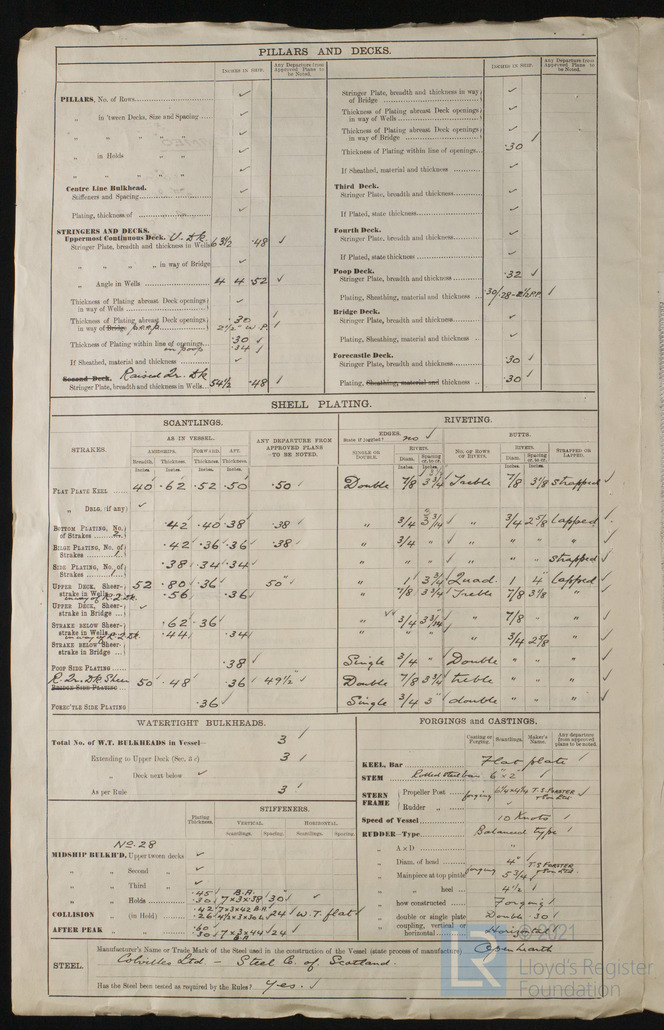 PILLARS AND DECKS.
INCHES IN SHIP.
Any Departure from Approved Plans to be Noted.
PILLARS, No. of Rows ✓
„ in 'tween Decks, Size and Spacing ✓
„ „ „ „ ✓
„ in Holds „ „ ✓
„ „ „ „ ✓
Centre Line Bulkhead.
Stiffeners and Spacing ✓
Plating, thickness of ✓
STRINGERS AND DECKS.
Uppermost Continuous Deck. U. Dk
Stringer Plate, breadth and thickness in Wells 63½ .48 ✓
„ „ „ „ in way of Bridge ✓
„ Angle in Wells 4 4 .52 ✓
Thickness of Plating abreast Deck openings in way of Wells ✓
Thickness of Plating abreast Deck openings in way of Bridge poop .30 2½" W.P. ✓
Thickness of Plating within line of openings .30 ✓
on poop .34 ✓
If Sheathed, material and thickness ✓
Second Deck. Raised Qr. Dk
Stringer Plate, breadth and thickness in Wells 54½ .48 ✓
INCHES IN SHIP.
Any Departure from Approved Plans to be Noted.
Stringer Plate, breadth and thickness in way of Bridge ✓
Thickness of Plating abreast Deck openings in way of Wells ✓
Thickness of Plating abreast Deck openings in way of Bridge ✓
Thickness of Plating within line of openings .30 ✓
If Sheathed, material and thickness ✓
Third Deck.
Stringer Plate, breadth and thickness ✓
If Plated, state thickness ✓
Fourth Deck.
Stringer Plate, breadth and thickness ✓
If Plated, state thickness ✓
Poop Deck.
Stringer Plate, breadth and thickness .32 ✓
Plating, Sheathing, material and thickness .30/.28 - 2½ P.P. ✓
Bridge Deck.
Stringer Plate, breadth and thickness ✓
Plating, Sheathing, material and thickness ✓
Forecastle Deck.
Stringer Plate, breadth and thickness .30 ✓
Plating, Sheathing, material and thickness .30 ✓
SHELL PLATING.
SCANTLINGS.
RIVETING.
STRAKES.
AS IN VESSEL.
AMIDSHIPS. FORWARD. AFT.
Breadth. Thickness. Thickness. Thickness.
Inches. Inches. Inches. Inches.
ANY DEPARTURE FROM APPROVED PLANS TO BE NOTED.
EDGES.
State if joggled? no ✓
SINGLE OR DOUBLE.
RIVETS.
Diam. Spacing cr. to cr.
Inches. Inches.
BUTTS.
No. OF ROWS OF RIVETS.
RIVETS.
Diam. Spacing cr. to cr.
Inches. Inches.
STRAPPED OR LAPPED.
FLAT PLATE KEEL 40 .62 .52 .50 .50 ✓ Double 7/8 3¾ Treble 7/8 3⅛ strapped ✓
„ DBLG. (if any) ✓
BOTTOM PLATING, No. of Strakes .42 .40 .38 .38 ✓ „ 3/4 3¾ ✓ „ 3/4 2⅝ lapped ✓
BILGE PLATING, No. of Strakes 1 .42 .36 .36 .38 ✓ „ 3/4 „ ✓ „ „ „ „ ✓
SIDE PLATING, No. of Strakes 1 .38 .34 .34 ✓ „ „ „ ✓ „ „ „ strapped ✓
UPPER DECK, Sheer-strake in Wells 52 .80 .36 50" ✓ „ 1 3¾ Quad. 1 4 lapped ✓
in way of R.Q.Dk. .56 .36 ✓ „ 7/8 3¾ Treble 7/8 3⅛ „ ✓
UPPER DECK, Sheer-strake in Bridge ✓
STRAKE BELOW Sheer-strake in Wells .62 .36 ✓ „ 3/4 3¾ „ 7/8 „ ✓
in way of R.Q.Dk. .44 .34 ✓ „ „ 3/4 2⅝ „ ✓
STRAKE BELOW Sheer-strake in Bridge
POOP SIDE PLATING .38 ✓ Single 3/4 „ Double „ „ „ ✓
R. Qr. Dk Sheer 50 .48 .36 49½" ✓ Double 7/8 3¾ treble „ „ „ ✓
BRIDGE SIDE PLATING
FOREC'TLE SIDE PLATING .36 ✓ Single 3/4 3 double „ „ „ ✓
WATERTIGHT BULKHEADS.
Total No. of W.T. BULKHEADS in Vessel— 3 ✓
Extending to Upper Deck (Sec. 3 c) 3 ✓
„ Deck next below ✓
As per Rule 3 ✓
STIFFENERS.
Plating Thickness.
VERTICAL. HORIZONTAL.
Scantlings. Spacing. Scantlings. Spacing.
No. 28
MIDSHIP BULKH'D, Upper tween decks ✓
„ „ Second „ ✓
„ „ Third „ ✓
„ „ Holds .45 .30 B.A. 7 × 3 × .38 30" ✓
COLLISION „ (in Hold) .42 .26 7×3×42 B.A. 24 W.T. flat ✓
AFTER PEAK „ „ .60 .30 7×3×44 B.A. 24 ✓
FORGINGS and CASTINGS.
Casting or Forging. Scantlings. Maker's Name. Any departure from approved plans to be noted.
KEEL, Bar Flat plate ✓
STEM Rolled steel bar 6" × 2 ✓
STERN FRAME
Propeller Post forging T. S. FORSTER & Son Ltd.
Rudder „ ✓
Speed of Vessel 10 Knots ✓
RUDDER—Type Balanced type ✓
„ A x D „
„ Diam. of head 4" ✓
„ Mainpiece at top pintle forging 5¾ T. S. FORSTER & Son Ltd.
„ „ heel 4½ ✓
„ how constructed Forging ✓
„ double or single plate Double .30 ✓
„ coupling, vertical or horizontal Horizontal ✓
STEEL.
Manufacturer's Name or Trade Mark of the Steel used in the construction of the Vessel (state process of manufacture) Open hearth
Colvilles Ltd — Steel Co. of Scotland.
Has the Steel been tested as required by the Rules? Yes. ✓
© 2021
LR
Lloyd's Register
Foundation